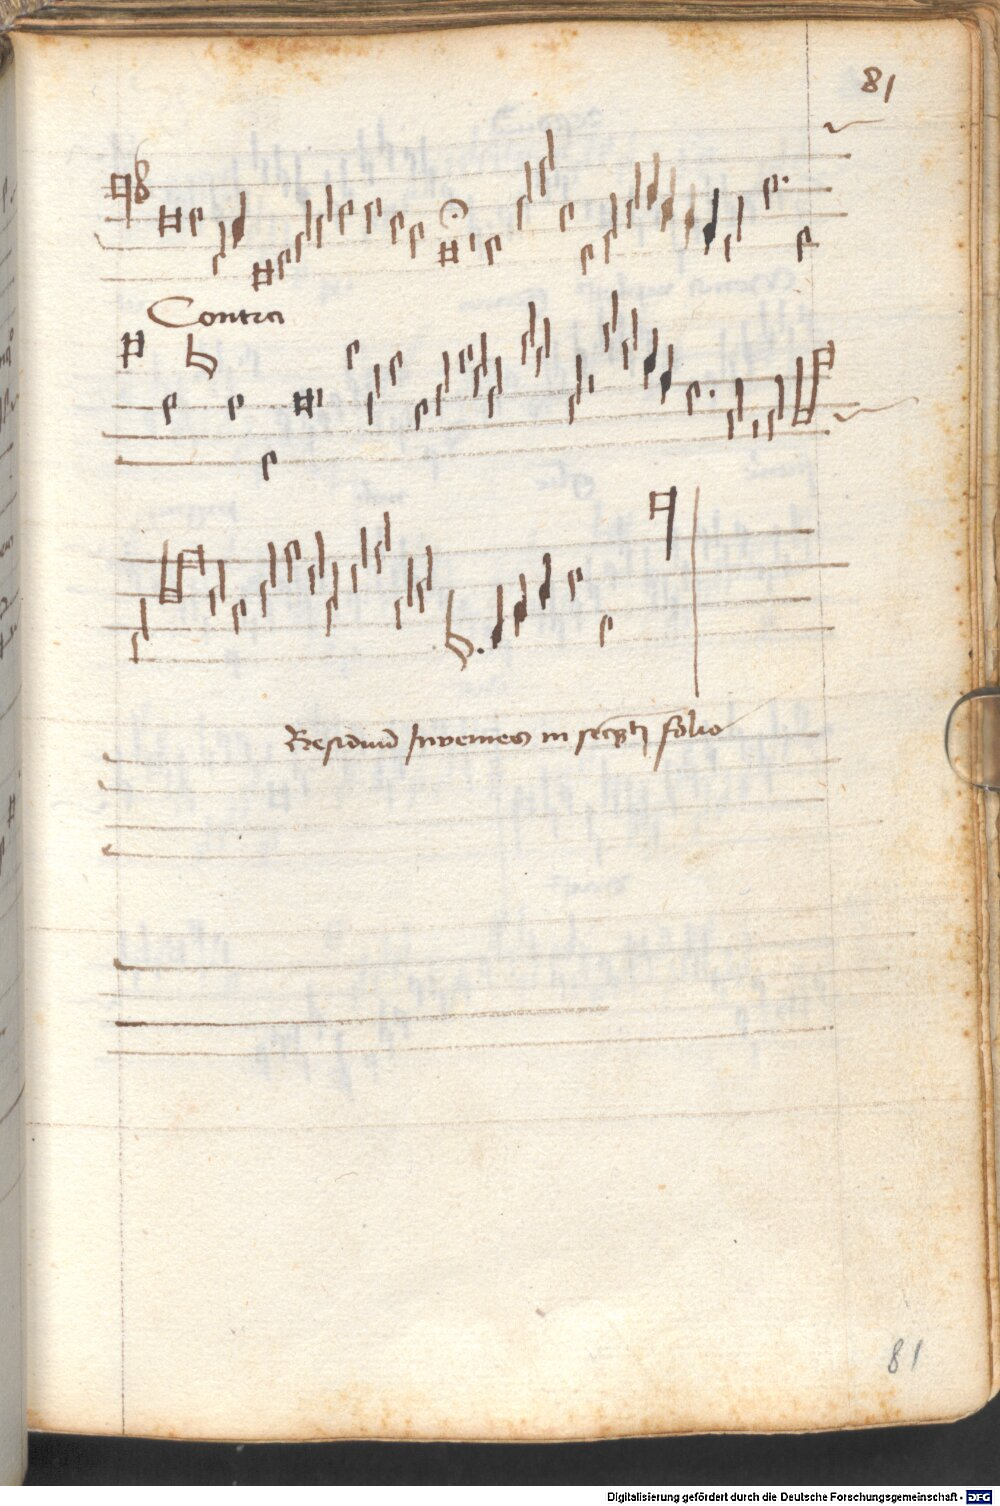 81
Contra
Residuū Invenies in seqͣti folio
81
Digitalisierung gefördert durch die Deutsche Forschungsgemeinschaft - DFG